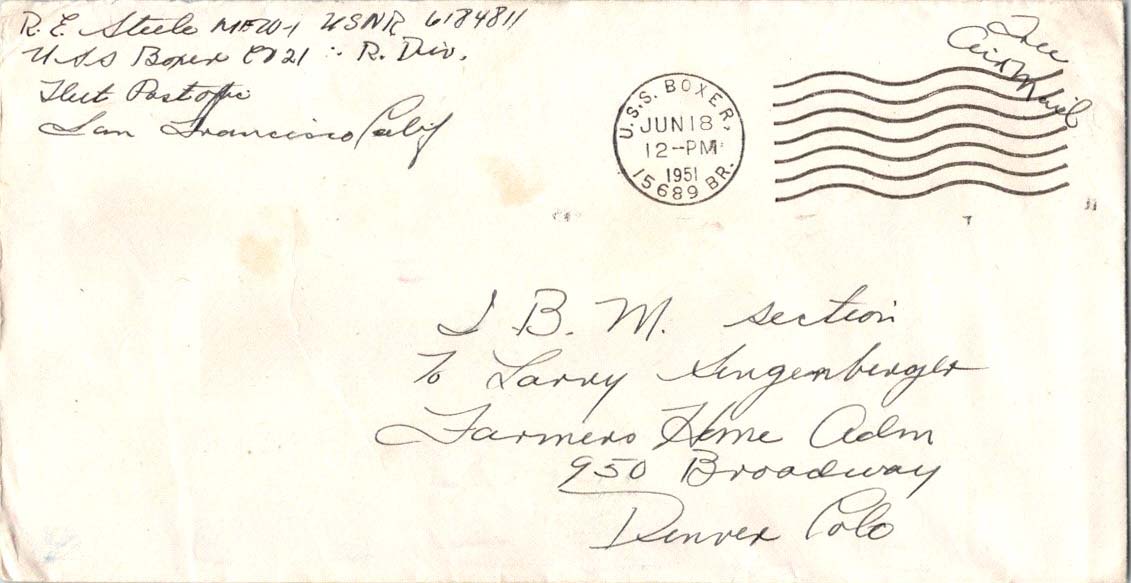 R. E. Steele MEW-1 USNR 6184811
USS Boxer CV21 :- R. Div.
Fleet Post office
San Francisco Calif
Free
Air Mail
U.S.S. BOXER,
JUN 18
12-PM
1951
15689 BR.
I B. M. section
To Larry Sengenberger
Farmers Home Adm
950 Broadway
Denver Colo